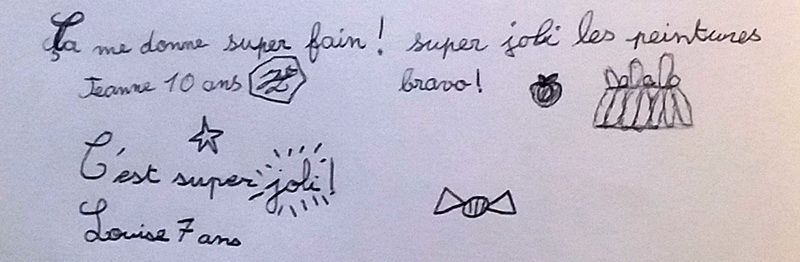 Ça me donne super fain! super joli les peintures
Jeanne 10 ans bravo!
C'est super joli!
Louise 7 ans